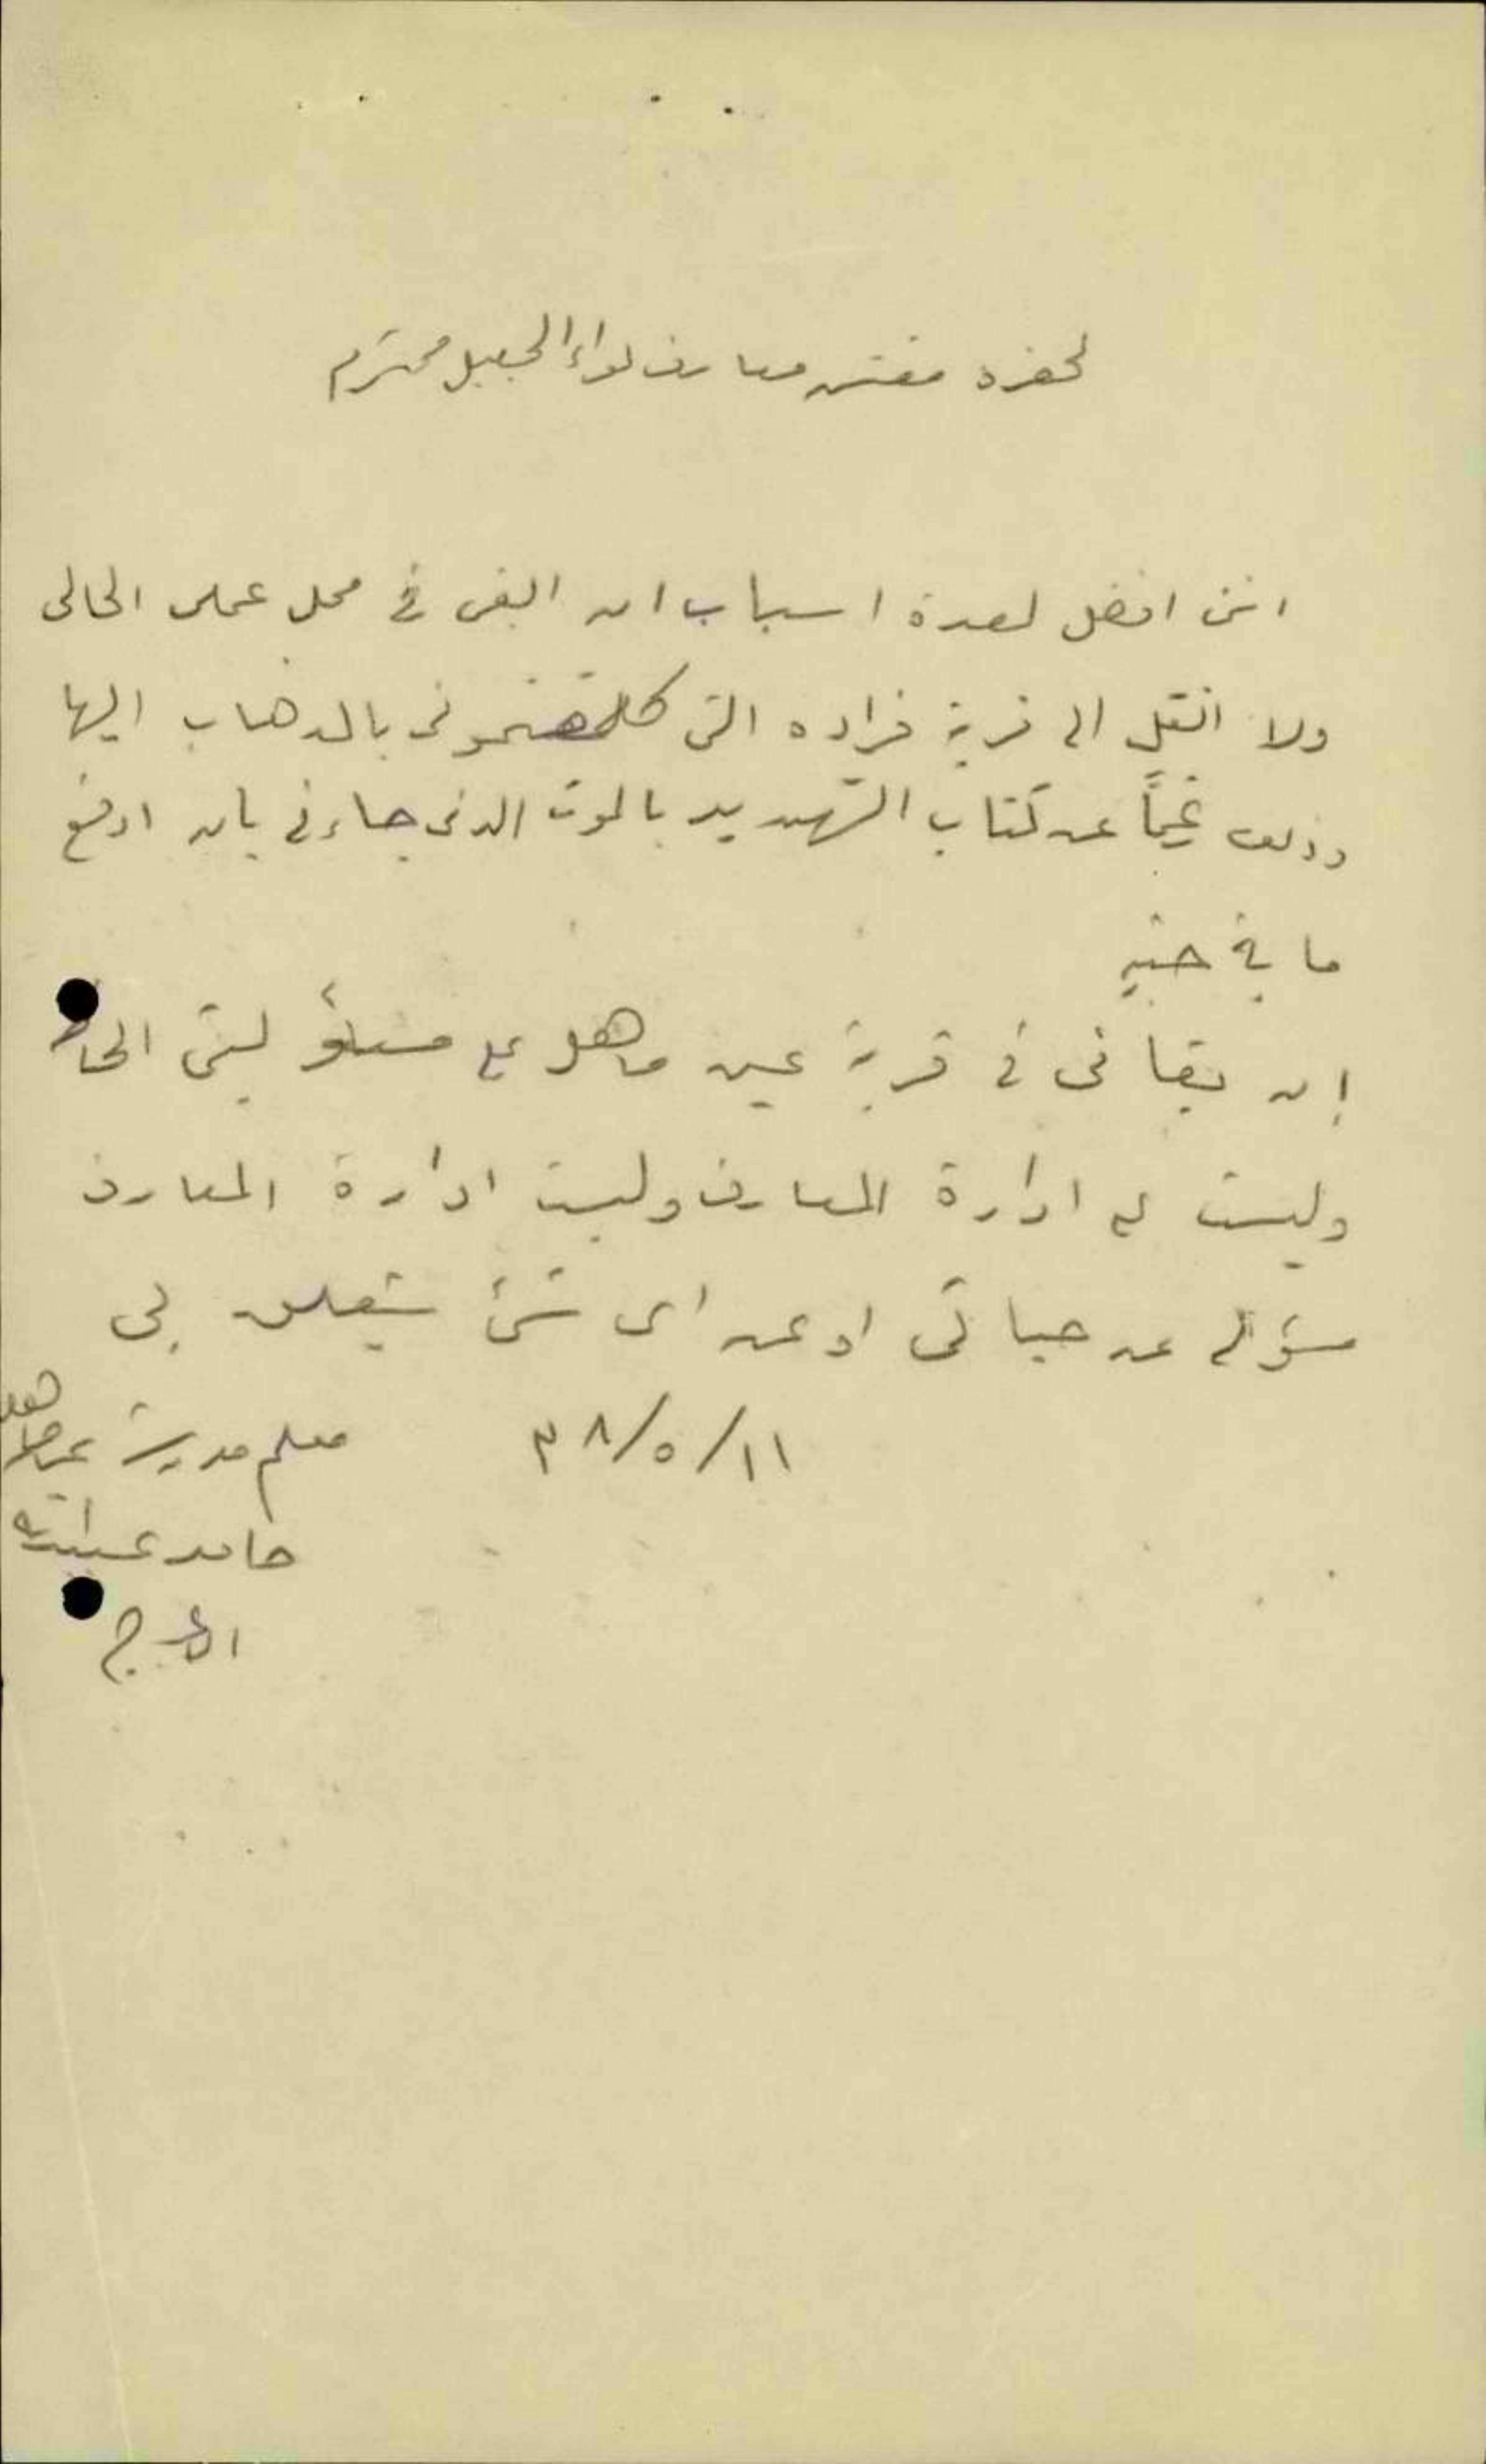 لحضرة مفتش معارف لواء الجليل محترم
انني افضل لعدة اسباب ان ابقى في محل عملي الحالي
ولا انتقل الى قرية فراده التي كلفتموني بالذهاب اليها
وذلك رغماً عن كتاب التهديد بالموت الذي جاءني بان ادفع
مايۃ جنيه
إن بقائي في قرية عين ماهل على مسئوليتي الخاصة
وليست على ادارة المعارف وليست ادارة المعارف
مسؤله عن حياتي او عن اي شئ يتعلق بي
١١/٥/٣٨
معلم مدرسة عين ماهل
حامد عبدالله
الاعرج